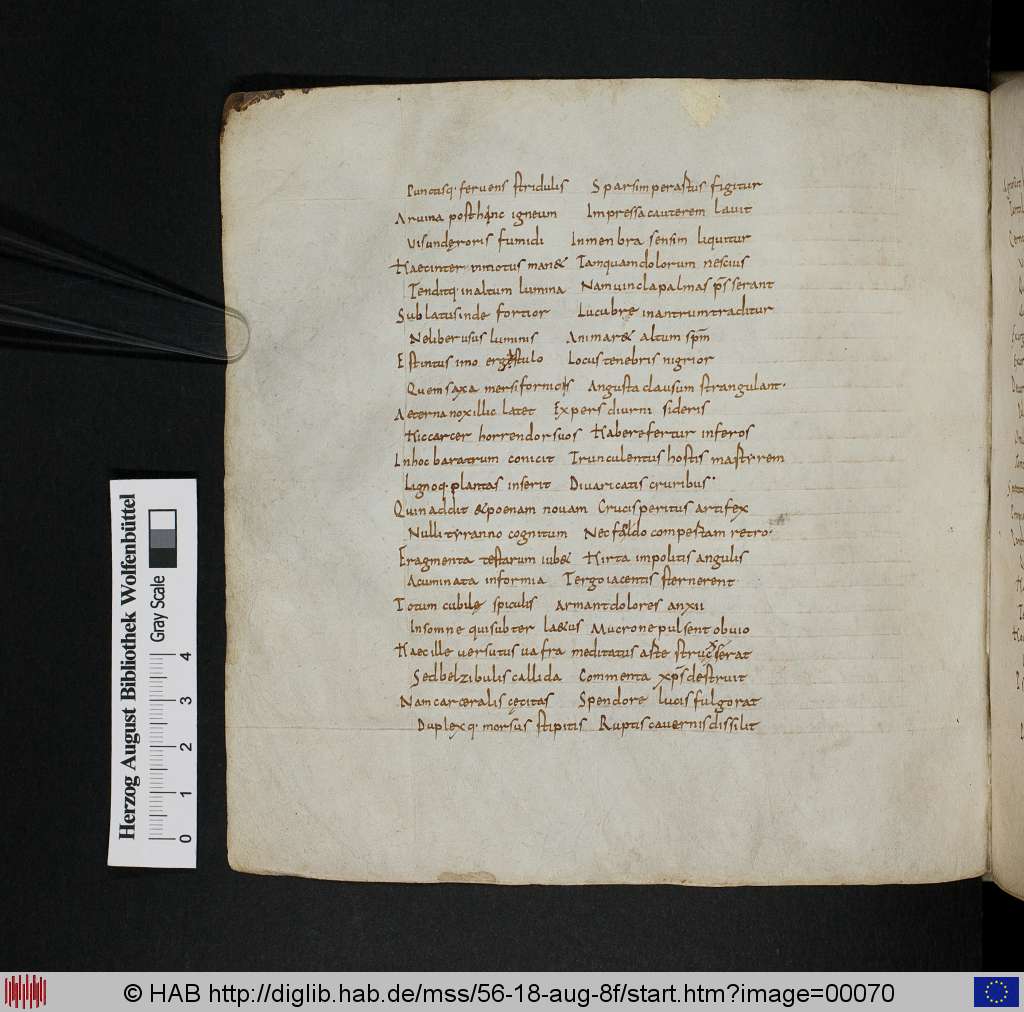 Punctisq· feruens stridulis Sparsim per astus figitur
Aruina post hinc igneum Impressa cauterem lauit
Vis unde roris fumidi In menbra sensim liquitur
Haec inter inmotus man& Tamquam dolorum nescius
Tenditq· in altum lumina Nam uincla palmas p̅s̅serant
Sublatus inde fortior Lucubre in antrum traditur
Ne liber usus luminis Animar& altum sp̅m
Est intus imo ergastulo Locus tenebris nigrior
Quem saxa mersi fornicis Angusta clausum strangulant·
Aeterna nox illic latet Expers diurni sideris
Hic carcer horrendor suos Habere fertur inferos
In hoc baratrum conicit Trunculentus hostis martyrem
Lignoq· plantas inserit Diuaricatis cruribus·
Quin addit &poenam nouam Crucis peritus artifex
Nulli tyranno cognitum Nec faldo compestam retro·
Fragmenta testarum iub& Hirta impolitis angulis
Acuminata informia Tergo iacentis sternerent
Totum cubile spiculis Armant dolores anxii
Insomne qui subter latus Mucrone pulsent obuio
Haec ille uersutus uafra meditatus aste struxerat
Sed belzibulis callida Commenta xp̅s destruit
Nam carceralis cecitas Spendore lucis fulgorat
Duplexq· morsus stipitis Ruptis cauernis dissilit
Herzog August Bibliothek Wolfenbüttel
Gray Scale
0 1 2 3 4
© HAB http://diglib.hab.de/mss/56-18-aug-8f/start.htm?image=00070